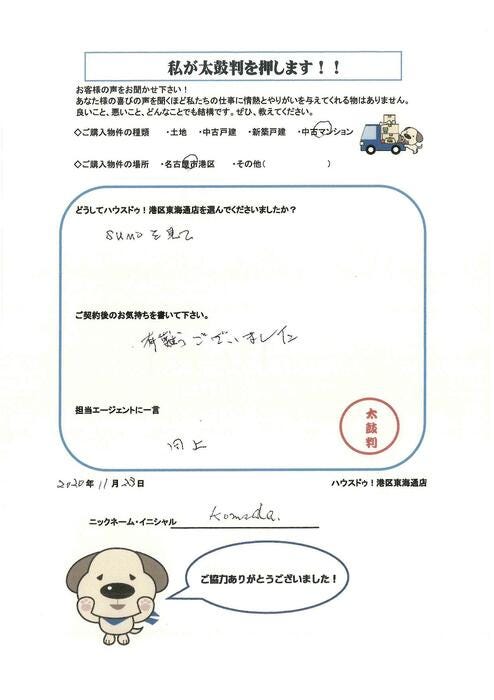 私が太鼓判を押します!!
お客様の声をお聞かせ下さい!
あなた様の喜びの声を聞くほど私たちの仕事に情熱とやりがいを与えてくれる物はありません。
良いこと、悪いこと、どんなことでも結構です。ぜひ、教えてください。
◇ご購入物件の種類 ・土地 ・中古戸建 ・新築戸建 ・中古マンション
◇ご購入物件の場所 ・名古屋市港区 ・その他( )
どうしてハウスドゥ!港区東海通店を選んでくださいましたか?
SUMOを見て
ご契約後のお気持ちを書いて下さい。
有難うございました
担当エージェントに一言
同上
太鼓判
2020年11月28日
ハウスドゥ!港区東海通店
ニックネーム・イニシャル Komada.
ご協力ありがとうございました!